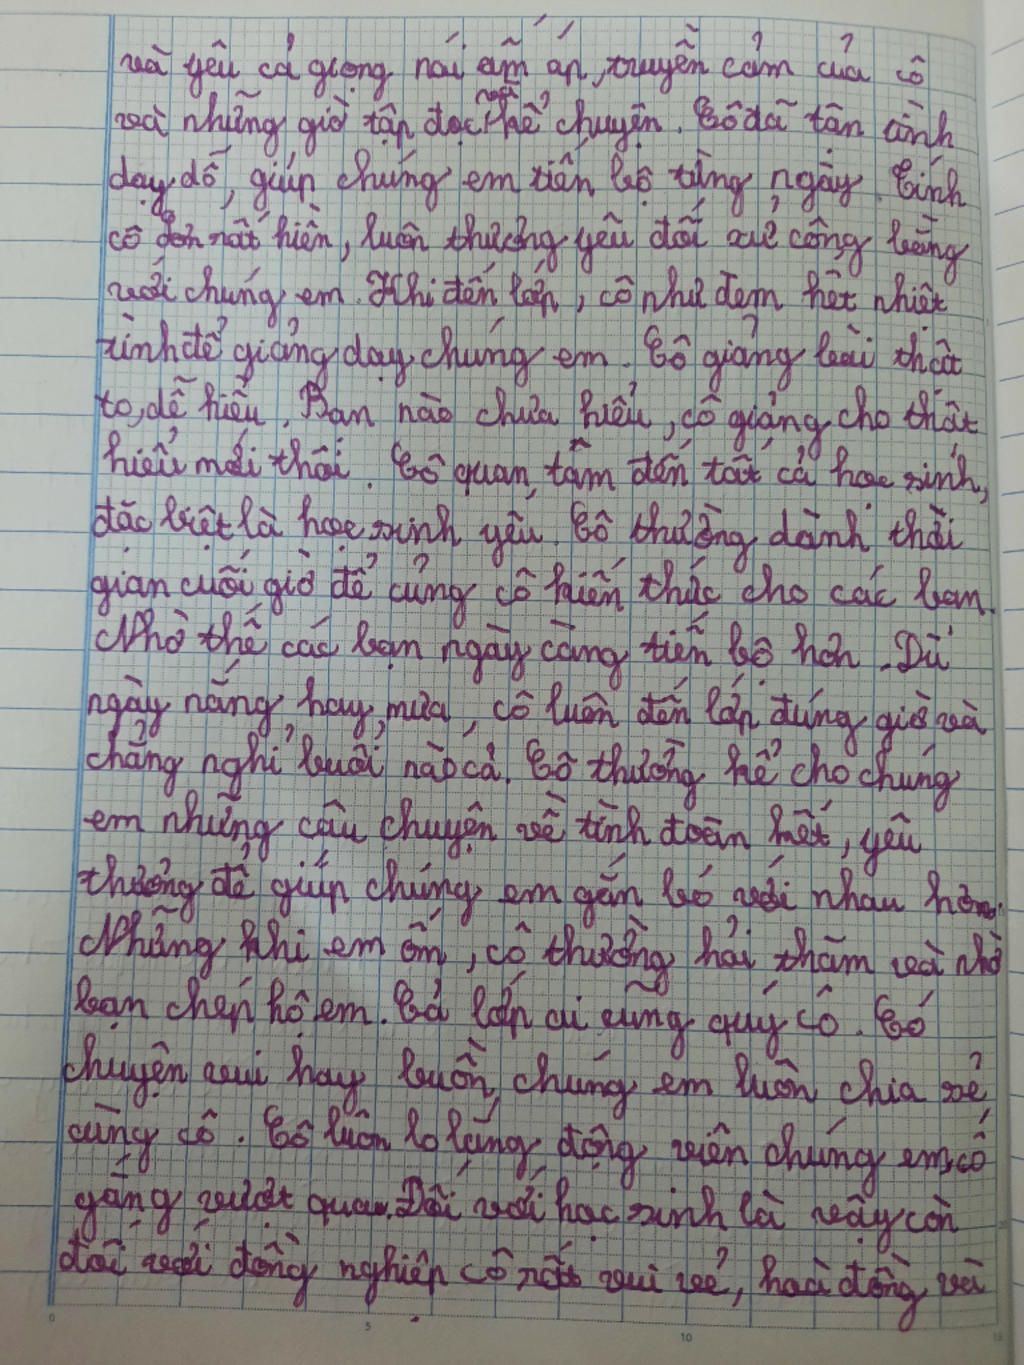 và yêu cả giọng nói ấm áp, truyền cảm của cô
và những giờ tập đọc và kể chuyện. Cô đã tận tình
dạy dỗ, giúp chúng em tiến bộ từng ngày. Tính
cô rất hiền, luôn thương yêu đối xử công bằng
với chúng em. Khi đến lớp, cô như đem hết nhiệt
tình để giảng dạy chúng em. Cô giảng bài thật
to, dễ hiểu. Bạn nào chưa hiểu, cô giảng cho thật
hiểu mới thôi. Cô quan tâm đến tất cả học sinh,
đặc biệt là học sinh yếu. Cô thường dành thời
gian cuối giờ để củng cố kiến thức cho các bạn.
Nhờ thế các bạn ngày càng tiến bộ hơn. Dù
ngày nắng hay mưa, cô luôn đến lớp đúng giờ và
chẳng nghỉ buổi nào cả. Cô thường kể cho chúng
em những câu chuyện về tình đoàn kết, yêu
thương để giúp chúng em gắn bó với nhau hơn.
Những khi em ốm, cô thường hỏi thăm và nhờ
bạn chép hộ em. Cả lớp ai cũng quý cô. Có
chuyện vui hay buồn, chúng em luôn chia sẻ
cùng cô. Cô luôn lo lắng động viên chúng em cố
gắng vượt qua. Đối với học sinh là vậy còn
đối với đồng nghiệp cô rất vui vẻ, hoà đồng và